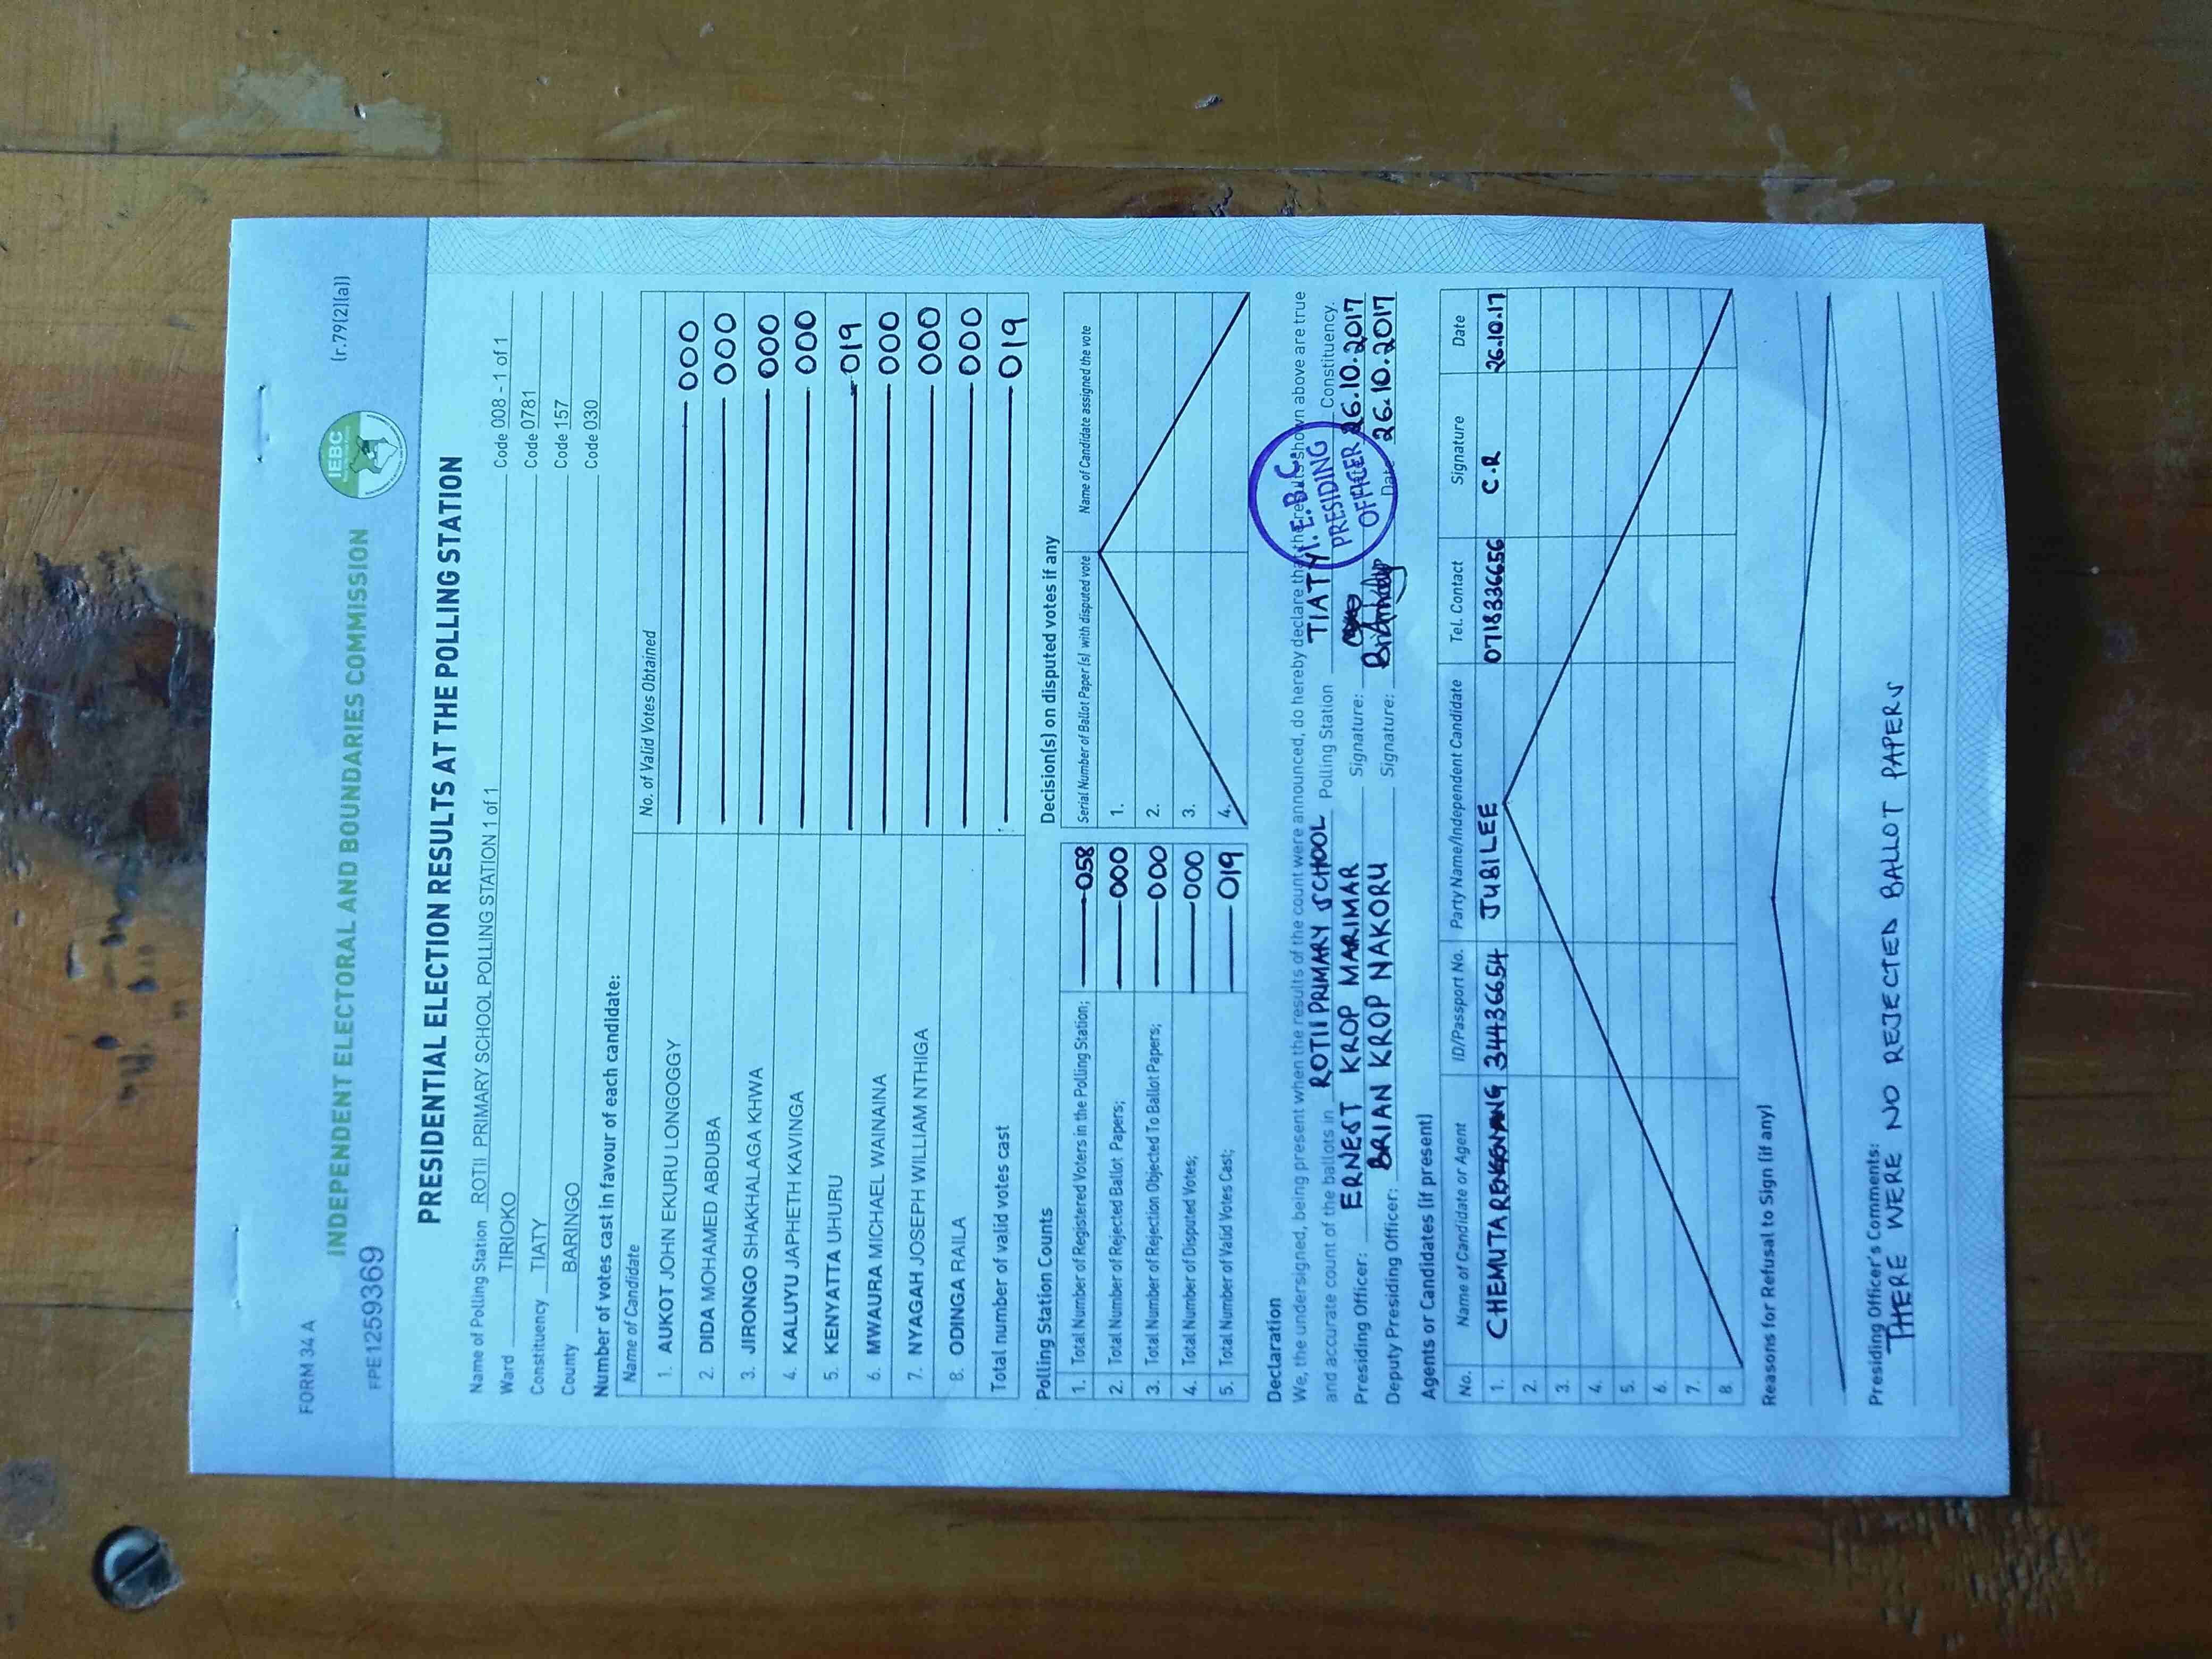 FORM 34 A
(r.79(2)(a))
IEBC
INDEPENDENT ELECTORAL AND BOUNDARIES COMMISSION
FPE1259369
PRESIDENTIAL ELECTION RESULTS AT THE POLLING STATION
Name of Polling Station ROTII PRIMARY SCHOOL POLLING STATION 1 of 1 Code 008 - 1 of 1
Ward TIRIOKO Code 0781
Constituency TIATY Code 157
County BARINGO Code 030
Number of votes cast in favour of each candidate:
Name of Candidate No. of Valid Votes Obtained
1. AUKOT JOHN EKURU LONGOGGY 000
2. DIDA MOHAMED ABDUBA 000
3. JIRONGO SHAKHALAGA KHWA 000
4. KALUYU JAPHETH KAVINGA 000
5. KENYATTA UHURU 019
6. MWAURA MICHAEL WAINAINA 000
7. NYAGAH JOSEPH WILLIAM NTHIGA 000
8. ODINGA RAILA 000
Total number of valid votes cast 019
Polling Station Counts
1. Total Number of Registered Voters in the Polling Station; 058
2. Total Number of Rejected Ballot Papers; 000
3. Total Number of Rejection Objected To Ballot Papers; 000
4. Total Number of Disputed Votes; 000
5. Total Number of Valid Votes Cast; 019
Decision(s) on disputed votes if any
Serial Number of Ballot Paper(s) with disputed vote Name of Candidate assigned the vote
1.
2.
3.
4.
Declaration
We, the undersigned, being present when the results of the count were announced, do hereby declare that the results shown above are true
and accurate count of the ballots in ROTII PRIMARY SCHOOL Polling Station TIATY Constituency.
Presiding Officer: ERNEST KROP MARIMAR Signature: 26.10.2017
Deputy Presiding Officer: BRIAN KROP NAKORU Signature: Date 26.10.2017
I.E.B.C.
PRESIDING
OFFICER
Agents or Candidates (if present)
No. Name of Candidate or Agent ID/Passport No. Party Name/Independent Candidate Tel. Contact Signature Date
1. 34436654 JUBILEE 0718336656 C.R 26.10.17
2.
3.
4.
5.
6.
7.
8.
Reasons for Refusal to Sign (if any)
Presiding Officer's Comments:
THERE WERE NO REJECTED BALLOT PAPERS